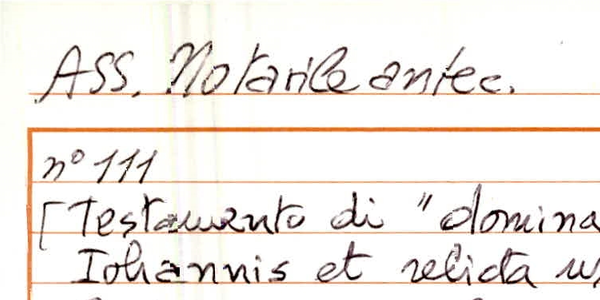 ASS. Notarile antec.
nº 111
[Testamento di "domina
Iohannis et relicta